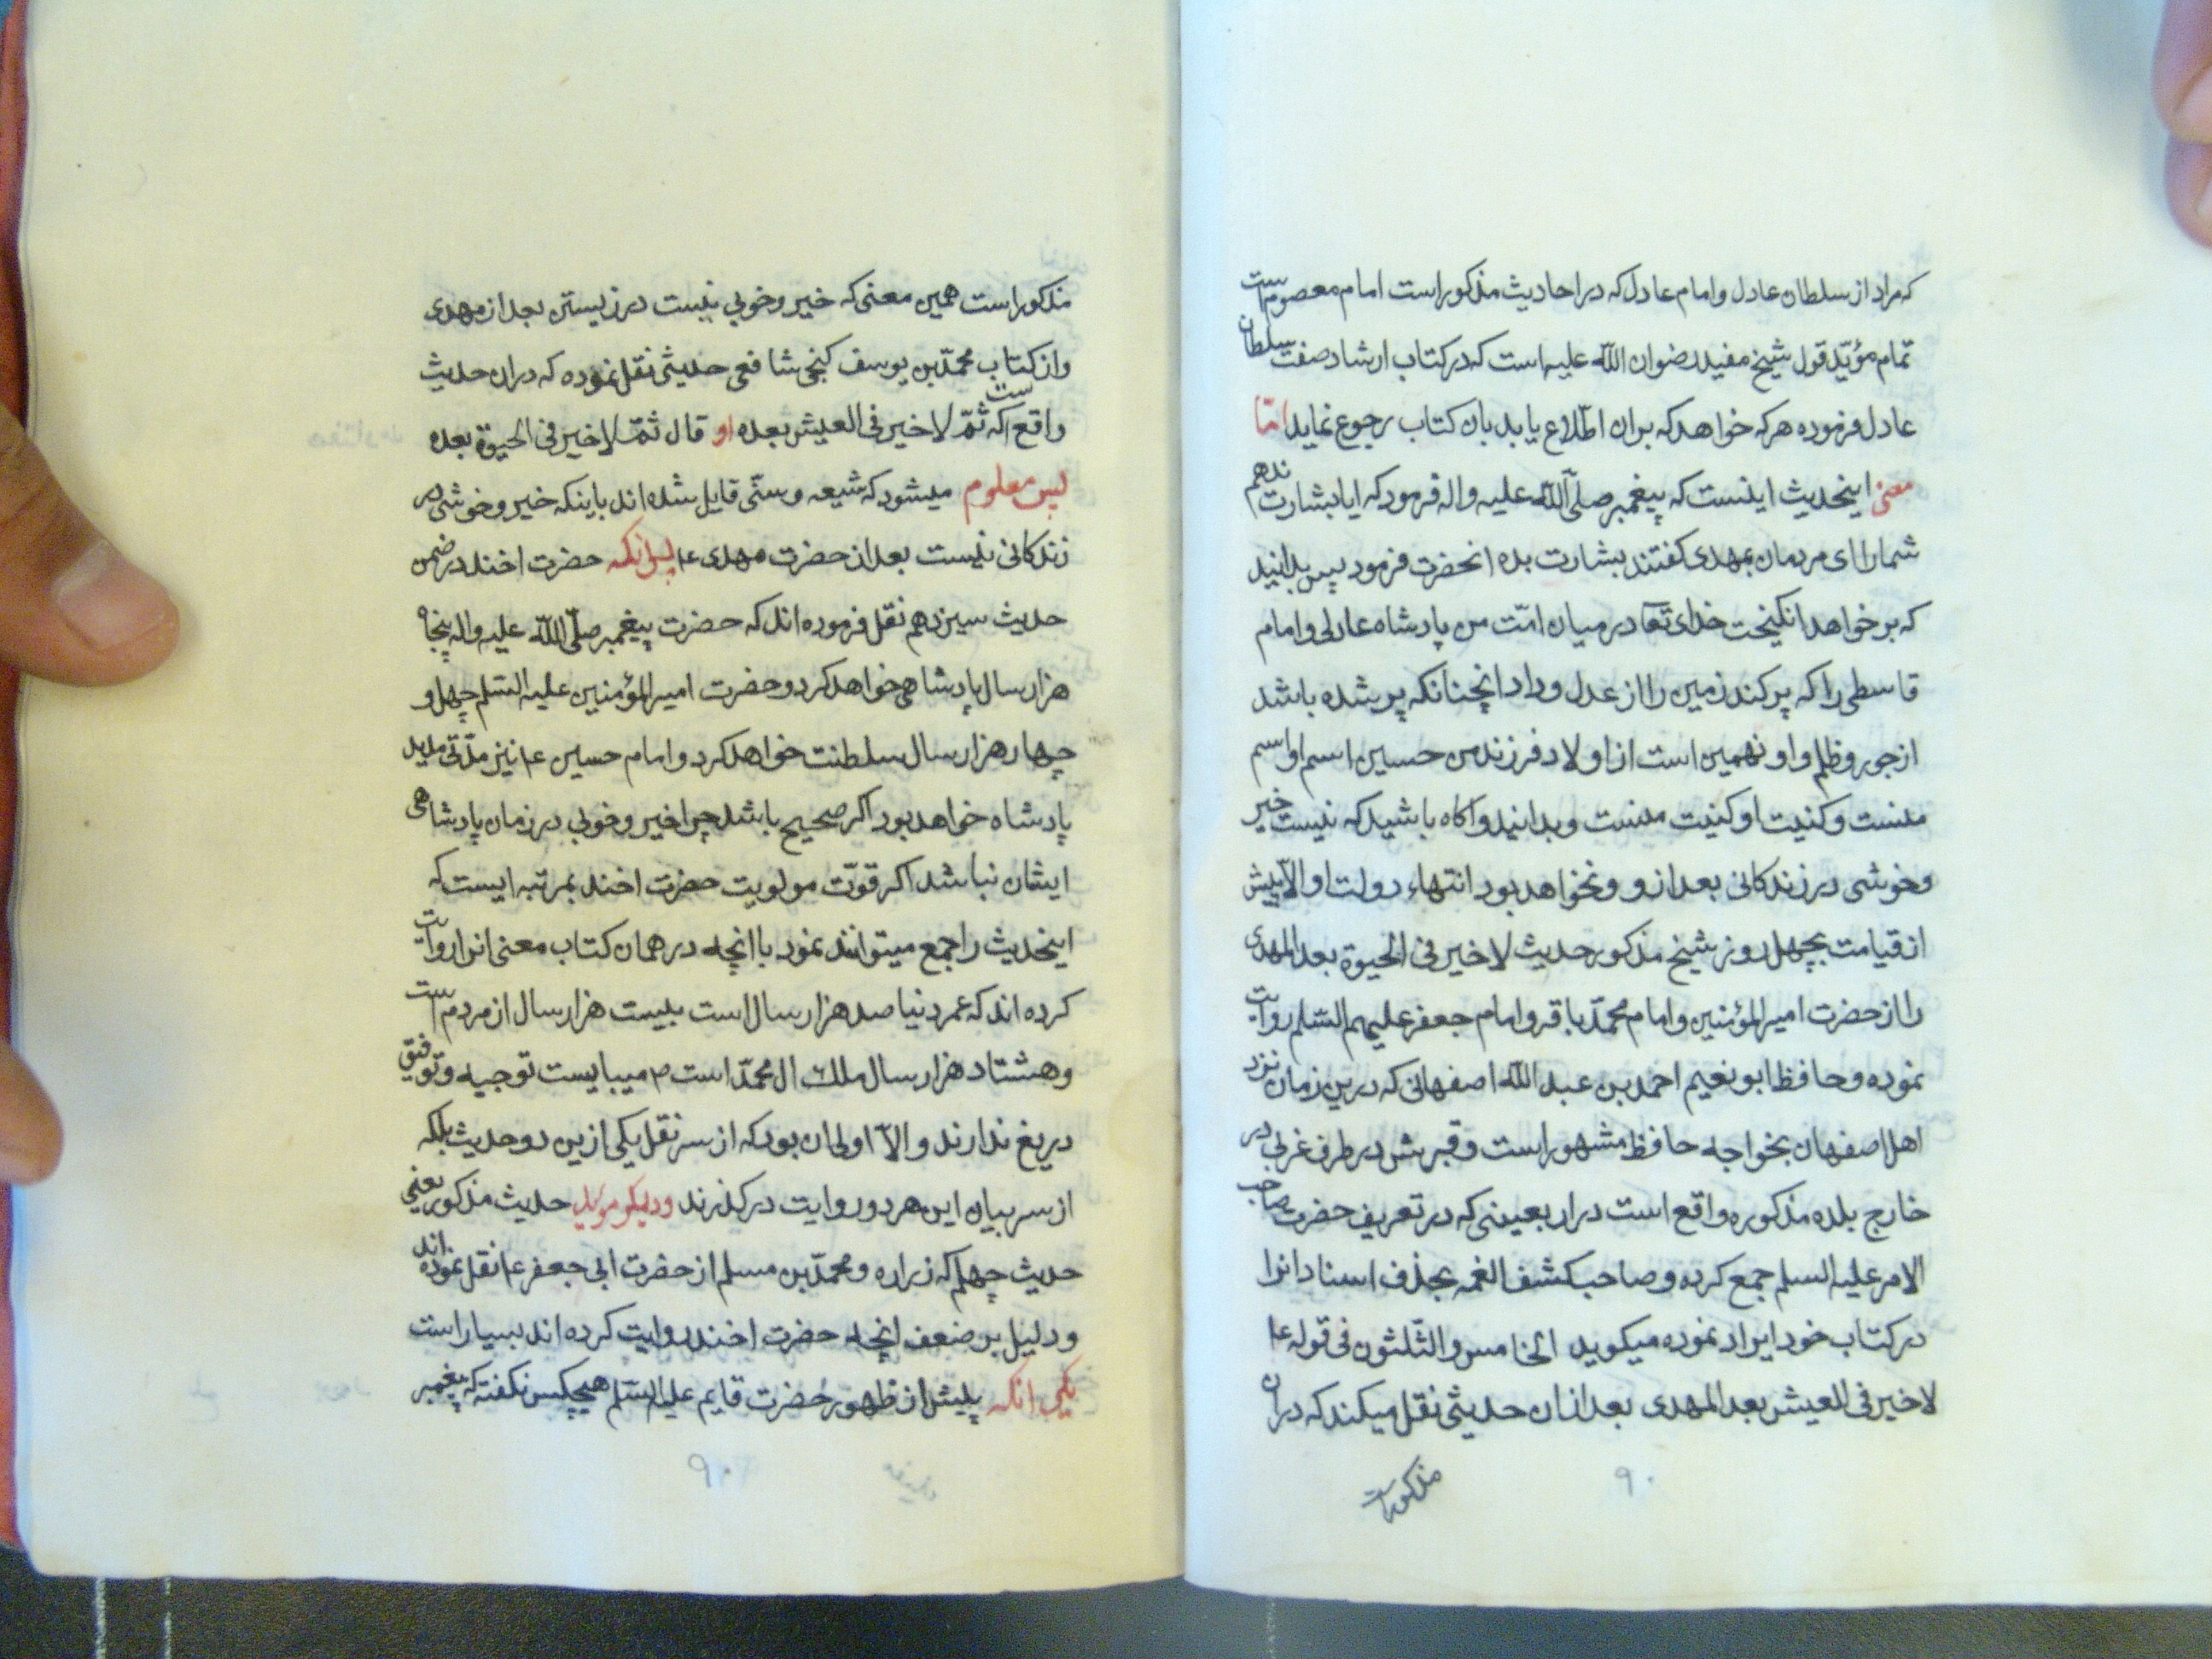 که مراد از سلطان عادل و امام عادل که در احادیث مذکور است امام معصوم است
تمام مؤیّد قول شیخ مفید رضوان الله علیه است که در کتاب ارشاد صفت سلطان
عادل فرموده هرکه خواهد که بران اطّلاع یابد بان کتاب رجوع نماید امّا
معنی اینحدیث اینست که پیغمبر صلّی الله علیه واله فرمود که ایا بشارت ندهم
شما را ای مردمان بمهدی کفتند بشارت بده انحضرت فرمود پس بدانید
که بر خواهد انکیخت خدای تعا در میان امّت من پادشاه عادلی و امام
قاسطی را که پر کند زمین را از عدل و داد انچنانکه پر شده باشد
از جور و ظلم و او نهمین است از اولاد فرزند من حسین اسم او اسم
منست و کنیت او کنیت منست و بدانید و اکاه باشید که نیست خیر
و خوشی در زندکانی بعد ازو و نخواهد بود انتهاء دولت او الّا پیش
از قیامت بچهل روز شیخ مذکور حدیث لا خیر فی الحیوة بعد المهدی
را از حضرت امیر المؤمنین و امام محمّد باقر و امام جعفر علیهم السّلم روایت
نموده و حافظ ابو نعیم احمد بن عبد الله اصفهانی که درین زمان نزد
اهل اصفهان بخواجه حافظ مشهور است و قبرش در طرف غربی در
خارج بلده مذکوره واقع است در اربعینی که در تعریف حضرت صاحب
الامر علیه السلم جمع کرده و صاحب کشف الغمه بحذف اسناد انرا
در کتاب خود ایراد نموده میکوید الخامس والثّلثون فی قوله ع
لا خیر فی العیش بعد المهدی بعد ازان حدیثی نقل میکند که در ان
مذکور است
۹۰
مذکور است همین معنی که خیر و خوبی نیست در زیستن بعد از مهدی
و از کتاب محمّد بن یوسف کنجی شافعی حدیثی نقل نموده که در ان حدیث
واقع است که ثمّ لا خیر فی العیش بعده او قال ثمّ لا خیر فی الحیوة بعده
پس معلوم میشود که شیعه و سنّی قایل شده اند باینکه خیر و خوشی در
زندکانی نیست بعد از حضرت مهدی ع پس انکه حضرت اخند در ضمن
حدیث سیزدهم نقل فرموده اند که حضرت پیغمبر صلّی الله علیه واله پنجاه
هزار سال پادشاهی خواهد کرد و حضرت امیر المؤمنین علیه السّلم چهل و
چهار هزار سال سلطنت خواهد کرد و امام حسین ع نیز مدّتی مدید
پادشاه خواهد بود اکر صحیح باشد چرا خیر و خوبی در زمان پادشاهی
ایشان نباشد اکر قوّت مولویت حضرت اخند بمرتبه ایست که
اینحدیث را جمع میتوانند نمود با انچه در همان کتاب معنی انرا روایت
کرده اند که عمر دنیا صد هزار سال است بیست هزار سال از مردم است
و هشتاد هزار سال ملک ال محمّد است ص میبایست توجیه و توفیق
دریغ ندارند و الّا اولی ان بود که از سر نقل یکی ازین دو حدیث بلکه
از سر بیان این هر دو روایت در کذرند و دیکر مؤید حدیث مذکور یعنی
حدیث چهلم که زراره و محمّد بن مسلم از حضرت ابی جعفر ع نقل نموده اند
و دلیل بر ضعف انچه حضرت اخند روایت کرده اند بسیار است
یکی انکه پیش از ظهور حضرت قایم علیه السّلم هیچکس نکفته که پیغمبر
۹۰